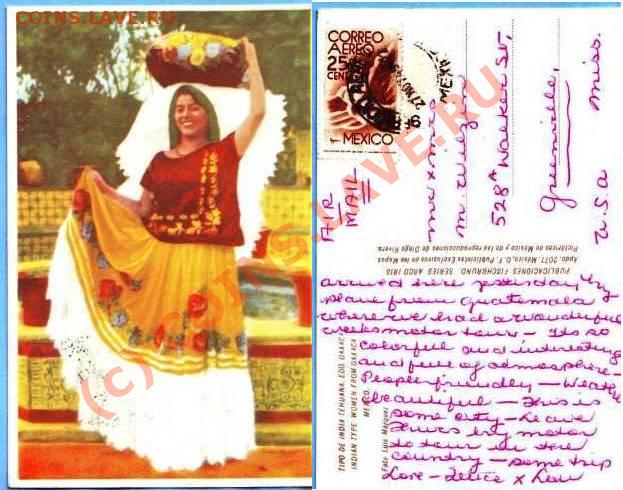 COINS.LAVE.RU
CORREO
AEREO
25
CENTAVOS
MEXICO
21 NOV
AIR
MAIL
528A Walker St,
Greenville,
Miss.
U.S.A
PUBLICACIONES FISCHGRUND SERIES ARCO IRIS
Apdo. 2071. México, D. F. Publicistas Exclusivos de los Mapas
Pictóricos de México y de las reproducciones de Diego Rivera.
TIPO DE INDIA TEHUANA, EDO. OAXACA
INDIAN TYPE WOMEN FROM OAXACA
MEXICO
Foto Luis Márquez
arrived here yesterday by
plane from Guatemala
where we had a wonderful
weeks motor tour - Its so
colorful and interesting
and full of atmosphere -
People friendly - Weather
beautiful - This is
some city - Leave
Thurs by motor
to tour in the
country - some trip
Love -
(c) COINS.LAVE.RU